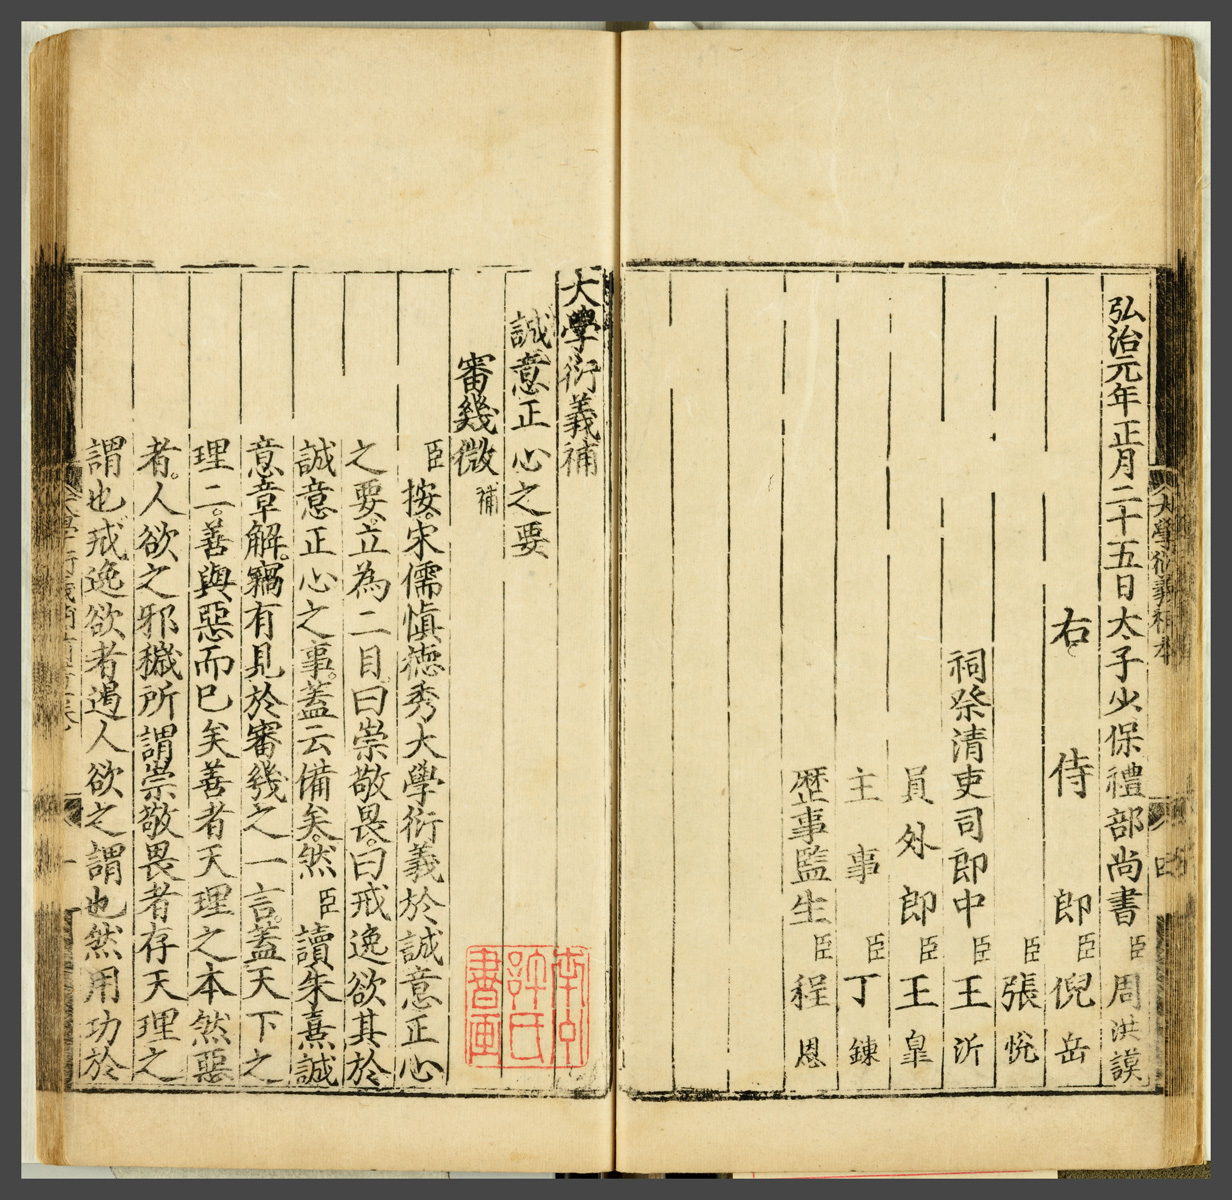 大學衍義補
四
弘治元年正月二十五日太子少保禮部尚書臣周洪謨
右侍郎臣倪岳
臣張悅
祠祭清吏司郎中臣王沂
員外郎臣王皐
主事臣丁鍊
歷事監生臣程恩
大學衍義補
誠意正心之要
審幾微補
臣按。宋儒愼德秀大學衍義於誠意正心
之要。立為二目。曰崇敬畏。曰戒逸欲其於
誠意正心之事。蓋云備矣。然臣讀朱熹誠
意章解。竊有見於審幾之一言。蓋天下之
理二。善與惡而巳矣善者天理之本然惡
者。人欲之邪穢所謂崇敬畏者存天理之
謂也。戒逸欲者遏人欲之謂也然用功於
許氏
書画